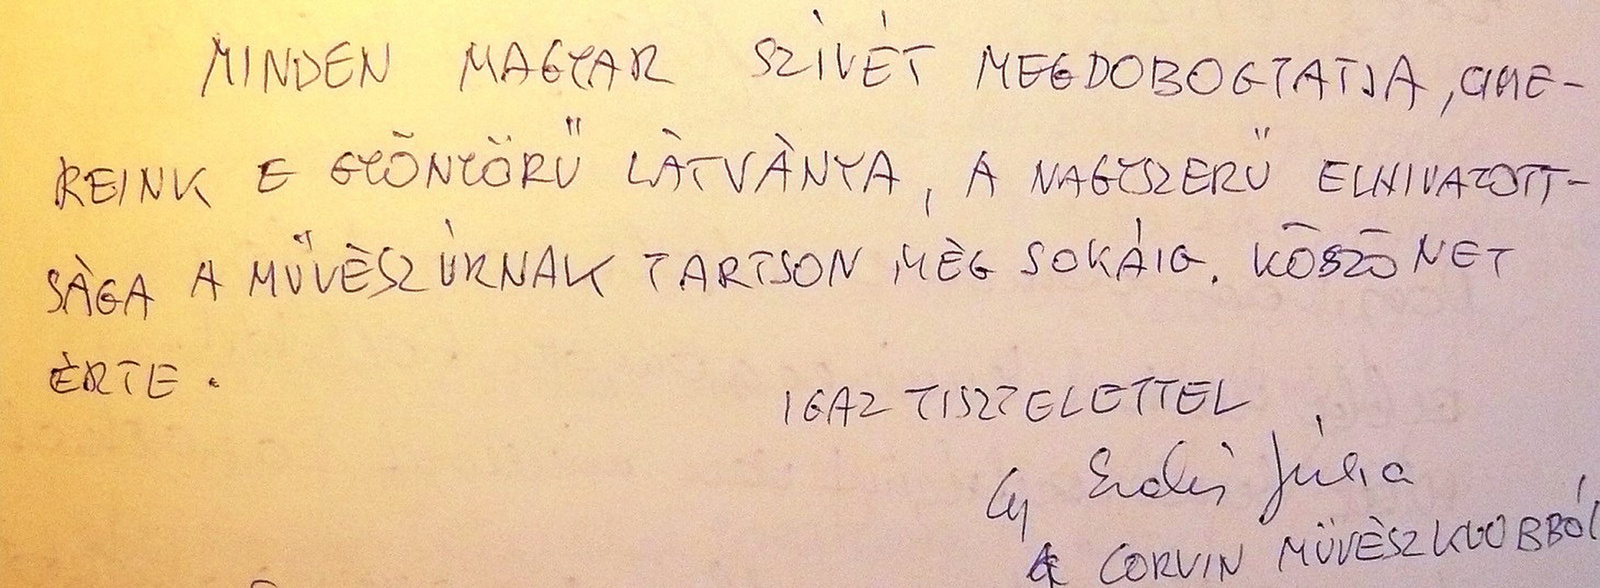 MINDEN MAGYAR SZÍVÉT MEGDOBOGTATJA, CIME-
REINK E GYÖNYÖRŰ LÁTVÁNYA, A NAGYSZERŰ ELHIVATOTT-
SÁGA A MŰVÉSZÚRNAK TARTSON MÉG SOKÁIG. KÖSZÖNET
ÉRTE.
IGAZ TISZTELETTEL
Júlia
A CORVIN MŰVÉSZKLUBBÓL